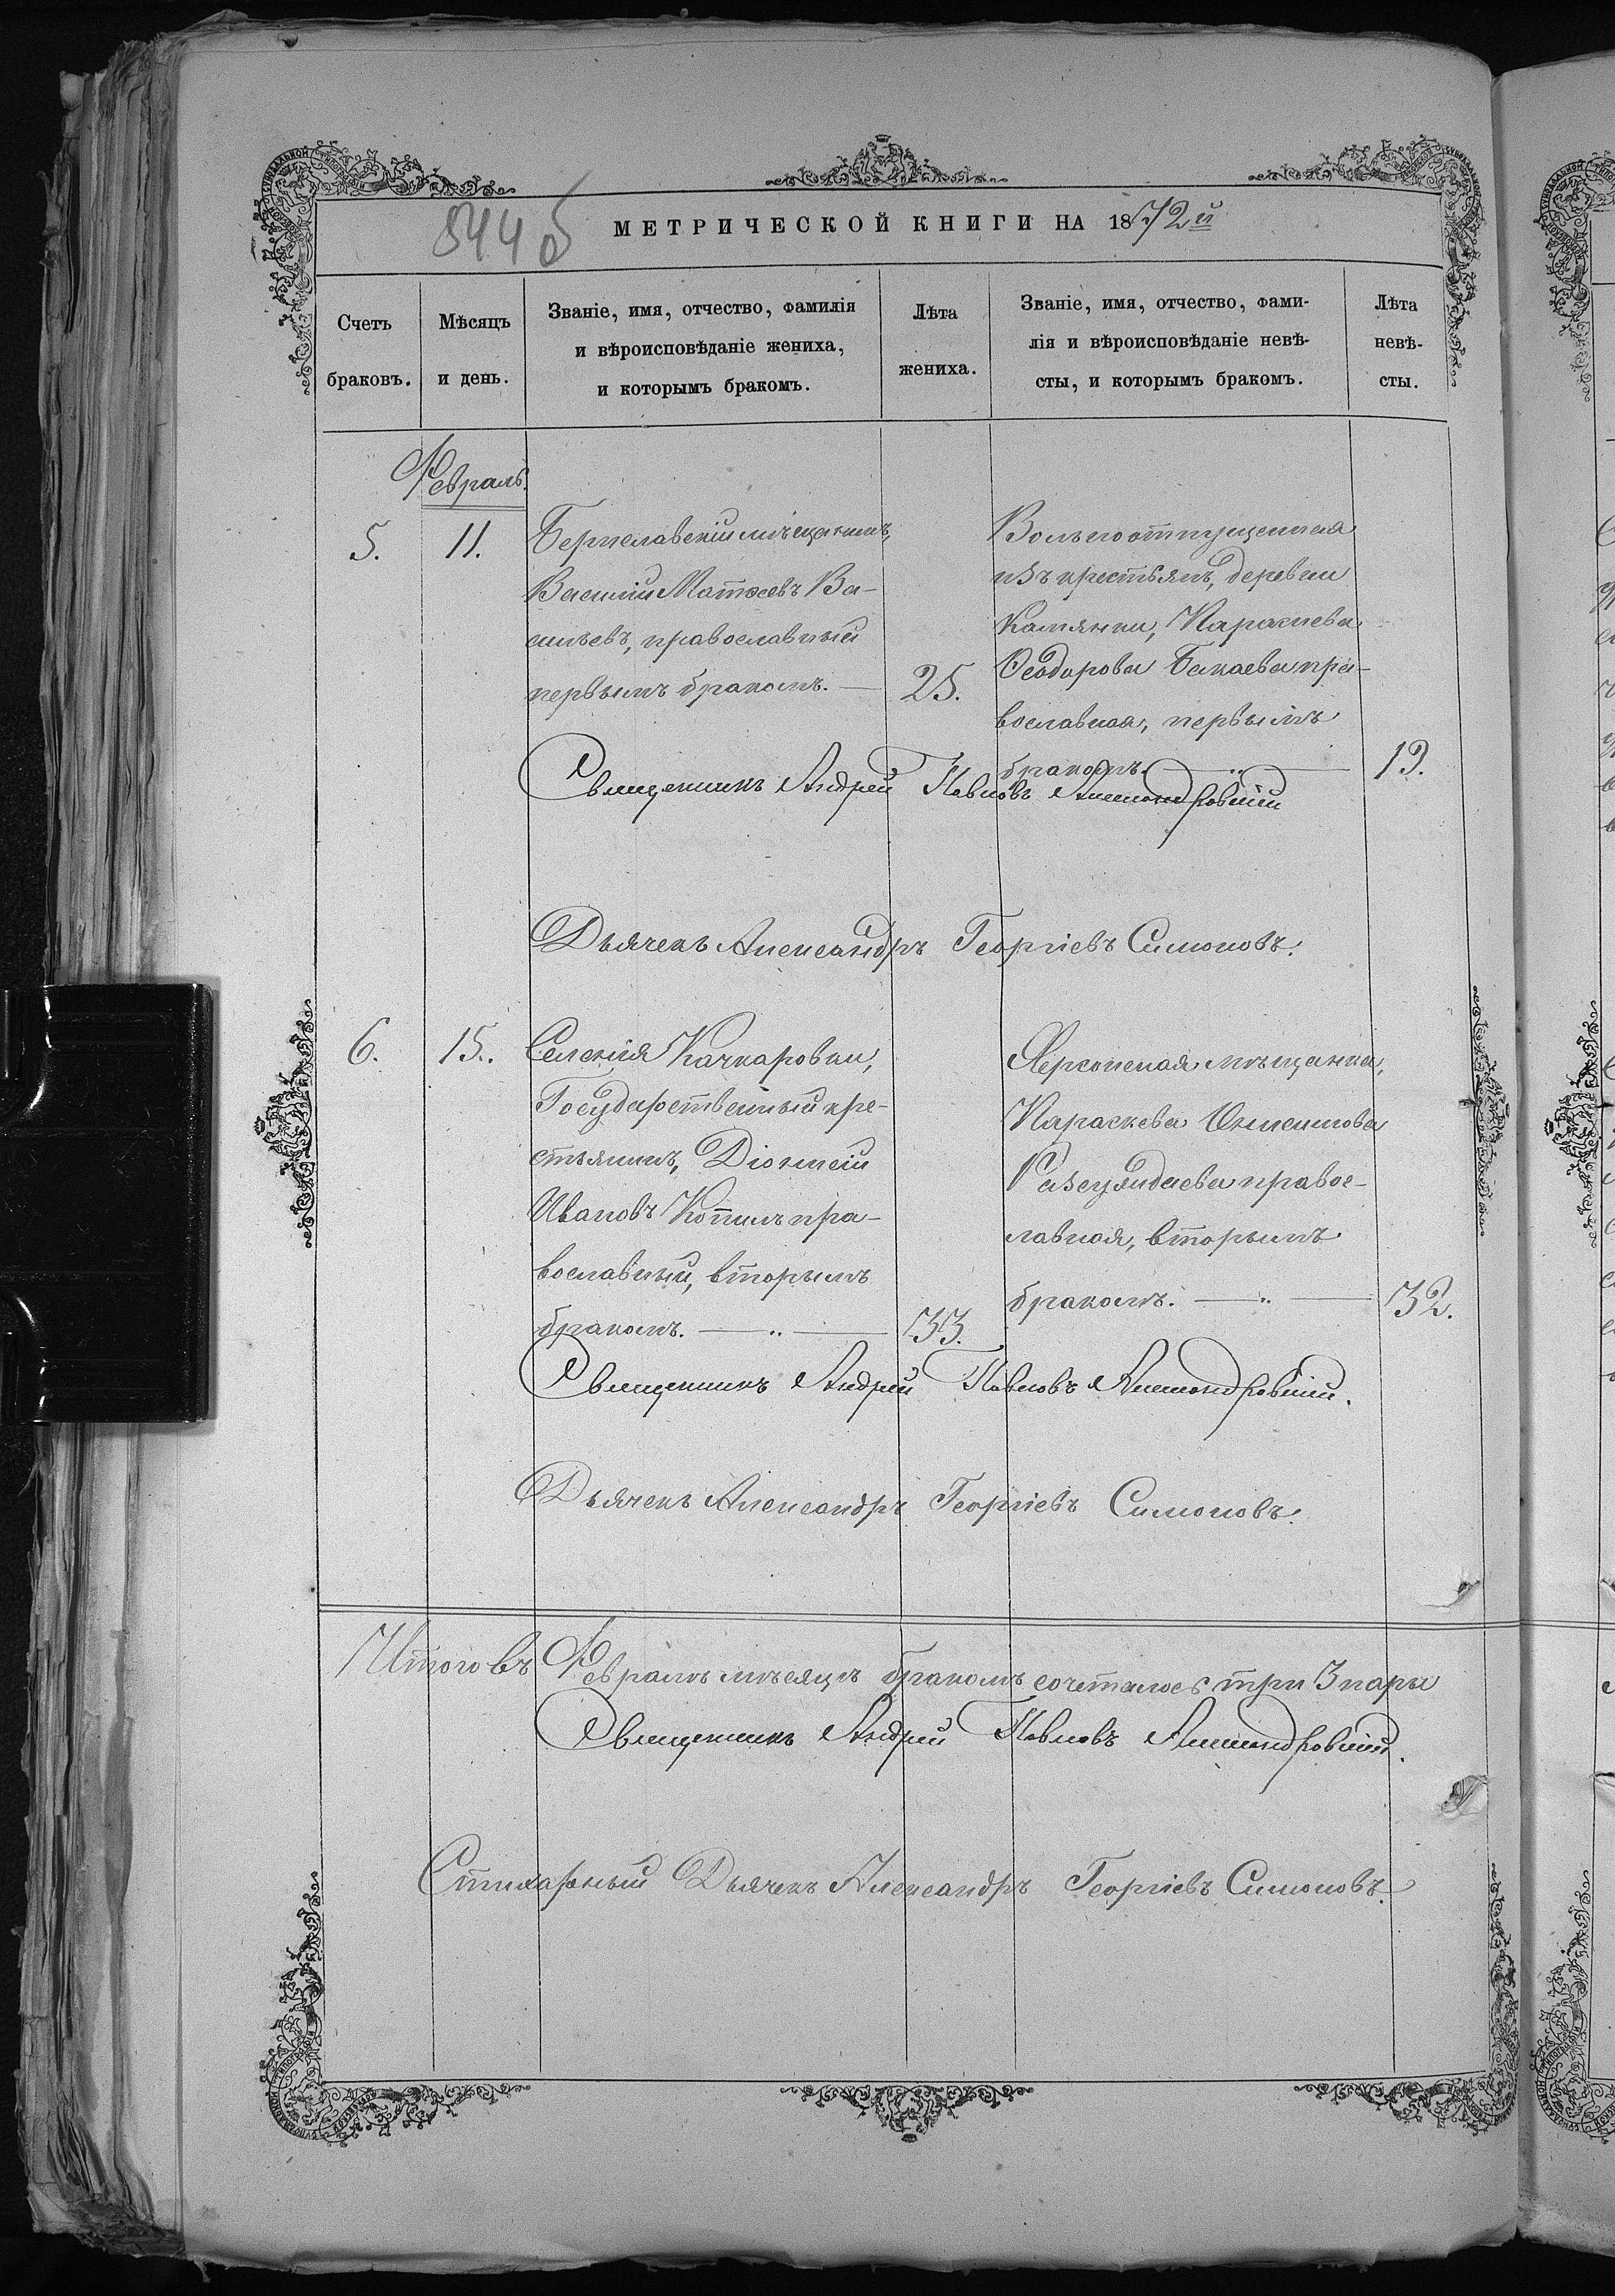 844 об
МЕТРИЧЕСКОЙ КНИГИ НА 1872й
Счетъ
браковъ.
Мѣсяцъ
и день.
Званіе, имя, отчество, фамилія
и вѣроисповѣданіе жениха,
и которымъ бракомъ.
Лѣта
жениха.
Званіе, имя, отчество, фами-
лія и вѣроисповѣданіе невѣ-
сты, и которымъ бракомъ.
Лѣта
невѣ-
сты.
Февраль.
5.
11.
Бериславскій мѣщанинъ,
Василій Матѳеевъ Ва-
сильевъ, православный
первымъ бракомъ. —
25.
Вольноотпущенная
изъ крестьянъ, деревни
Камянки, Параскева
Ѳеодорова Бакаева пра-
вославная, первымъ
бракомъ. — „ —
19.
Священникъ Андрей Павловъ
Дьячекъ Александръ Георгіевъ Симоновъ.
6.
15.
Селенія Качкаровки,
Государственный кре-
стьянинъ, Діонисій
Ивановъ Копилъ пра-
вославный, вторымъ
бракомъ. — „ —
33.
Херсонская мѣщанка,
Параскева
православная, вторымъ
бракомъ. — „ —
32.
Священникъ Андрей Павловъ
Дьячекъ Александръ Георгіевъ Симоновъ.
Итого въ Февралѣ мѣсяцѣ бракомъ сочеталось три 3 пары
Священникъ Андрей Павловъ
Стихарный Дьячекъ Александръ Георгіевъ Симоновъ.